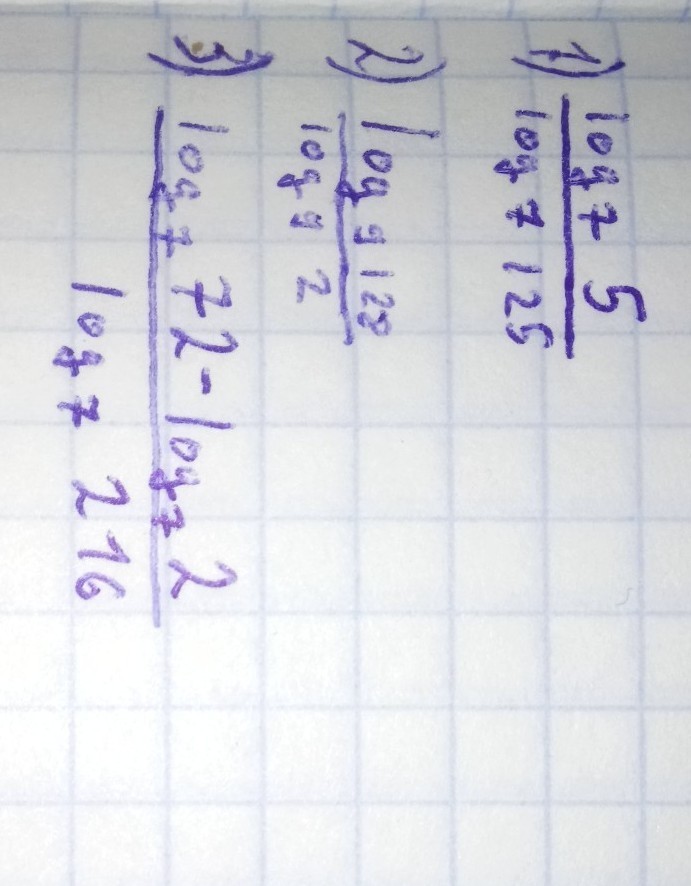 1) log 7 5
log 7 125
2) log 9 128
log 9 2
3) log 7 72 - log 7 2
log 7 216